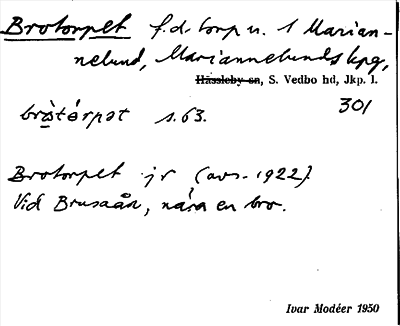 Brotorpet f.d. torp u. 1 Marian-
nelund, Mariannelunds kpg,
Hässleby sn, S. Vedbo hd, Jkp. l.
301
brọ̀tórpət s. 63.
Brotorpet jr (avs. 1922).
Vid Brusaån, nära en bro.
Ivar Modéer 1950